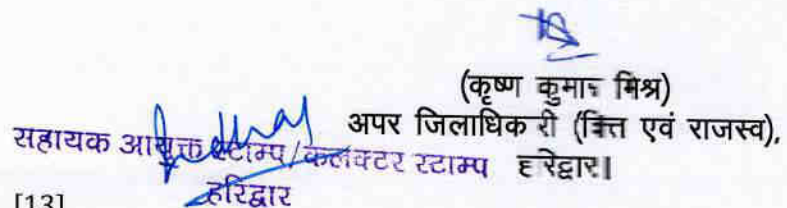 (कृष्ण कुमार मिश्र)
अपर जिलाधिकारी (वित्त एवं राजस्व),
हरिद्वार।
सहायक आयुक्त स्टाम्प/कलक्टर स्टाम्प
हरिद्वार
[13]